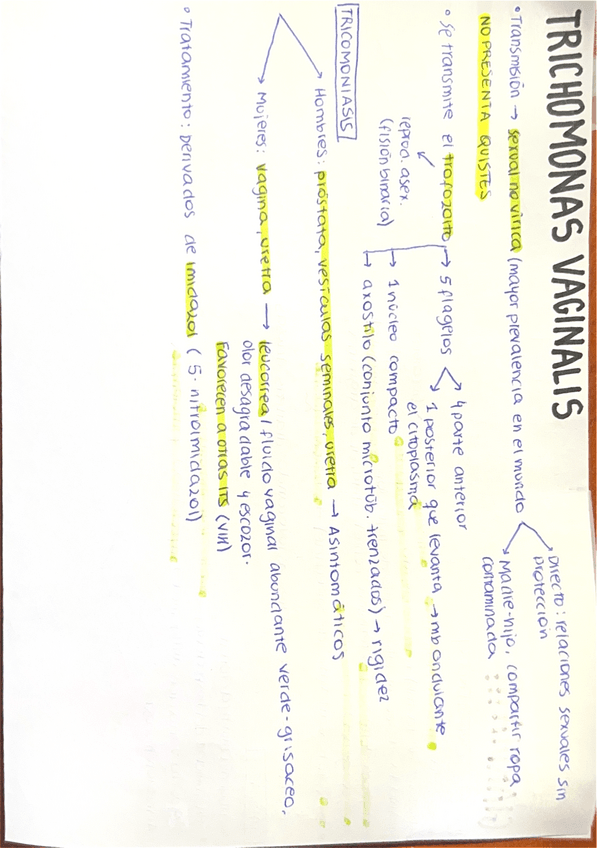 TRICHOMONAS VAGINALIS
• Transmisión → sexual no vírica (mayor prevalencia en el mundo)
Directo: relaciones sexuales sin
protección
Madre-hijo, compartir ropa
contaminada
NO PRESENTA QUISTES
• Se transmite el trofozoíto,
reprod. asex.
(fisión binaria)
→ 5 flagelos
4 parte anterior
1 posterior que levanta → mb ondulante
el citoplasma
→ 1 núcleo compacto
→ axostilo (conjunto microtúb. trenzados) → rigidez
TRICOMONIASIS
Hombres: próstata, vesículas seminales, uretra → Asintomáticos
Mujeres: vagina, uretra → leucorrea / fluido vaginal abundante verde-grisaceo,
olor desagradable y escozor.
Favorecen a otras ITS (VIH)
• Tratamiento: derivados de imidazol (5-nitroimidazol)